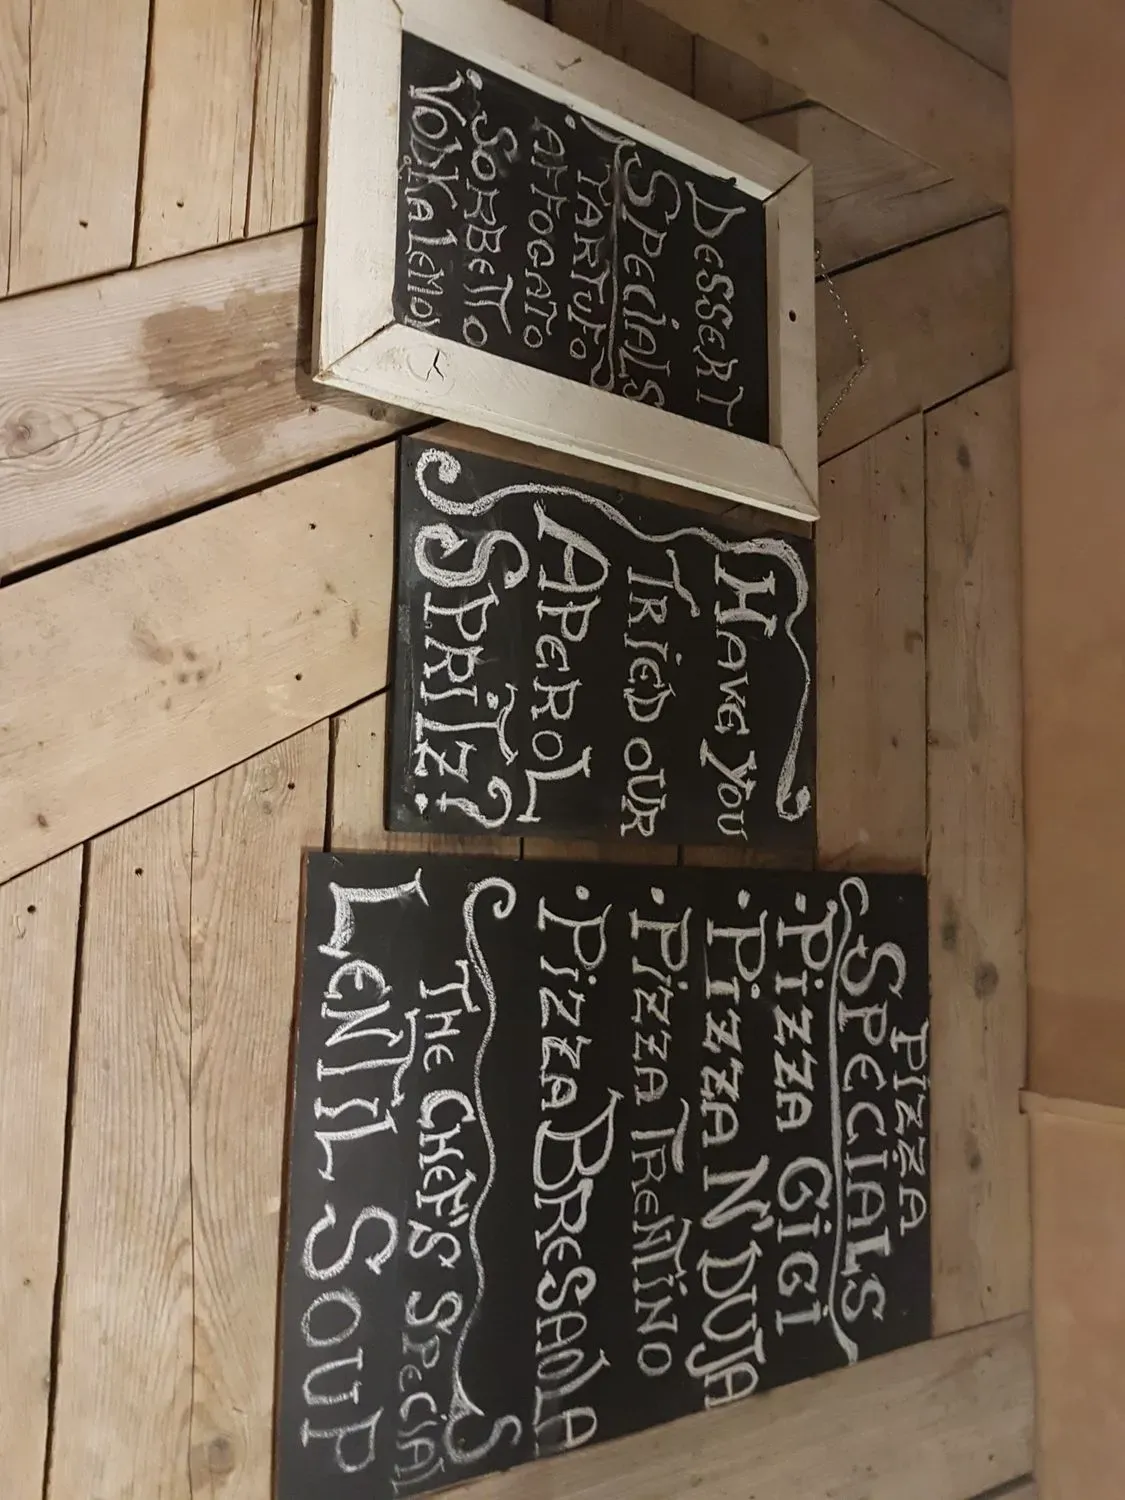 DESSERT
SPECIALS
· TARTUFO
AFFOGATO
· SORBETTO
VODKA LEMON
HAVE YOU
TRIED OUR
APEROL
SPRITZ?
PIZZA
SPECIALS
· PIZZA GIGI
· PIZZA N'DUJA
· PIZZA TRENTINO
· PIZZA BRESAOLA
THE CHEF'S SPECIAL
LENTIL SOUP